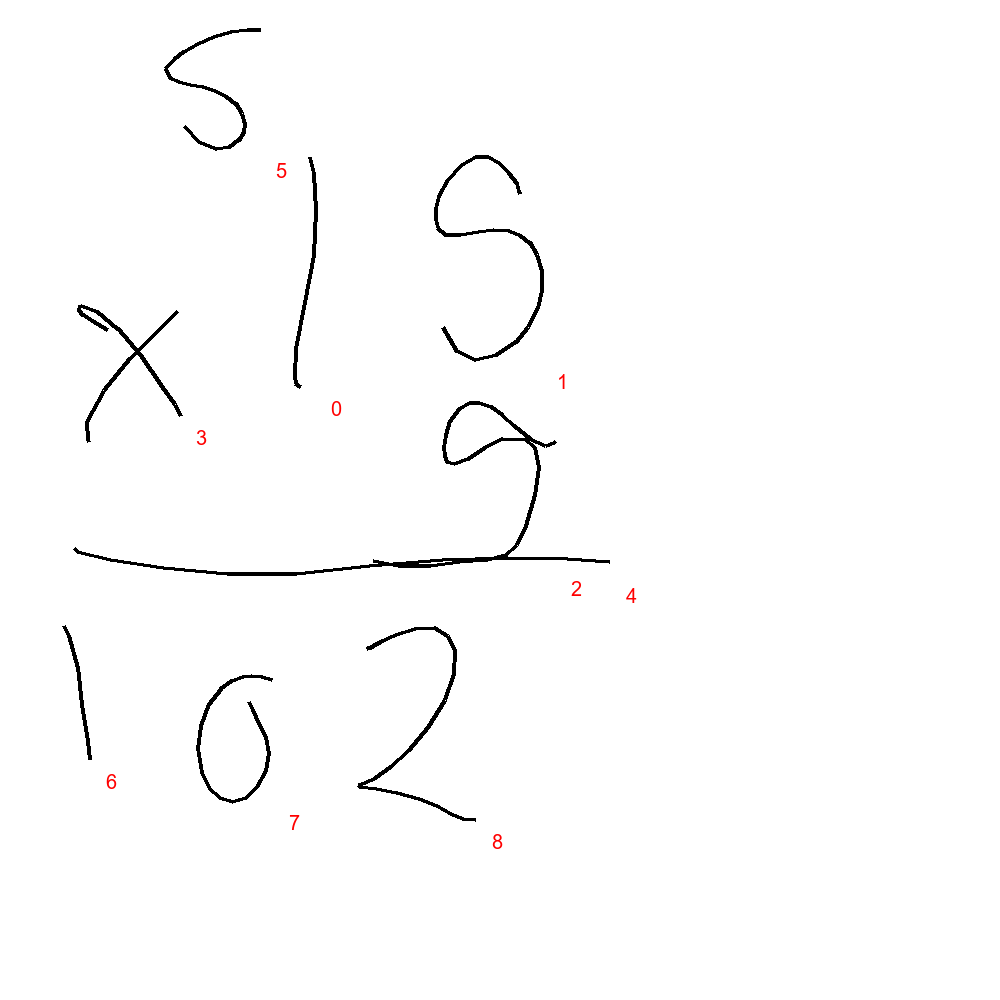 5
5
15
0 1
× 9
3
2 4
102
6 7 8